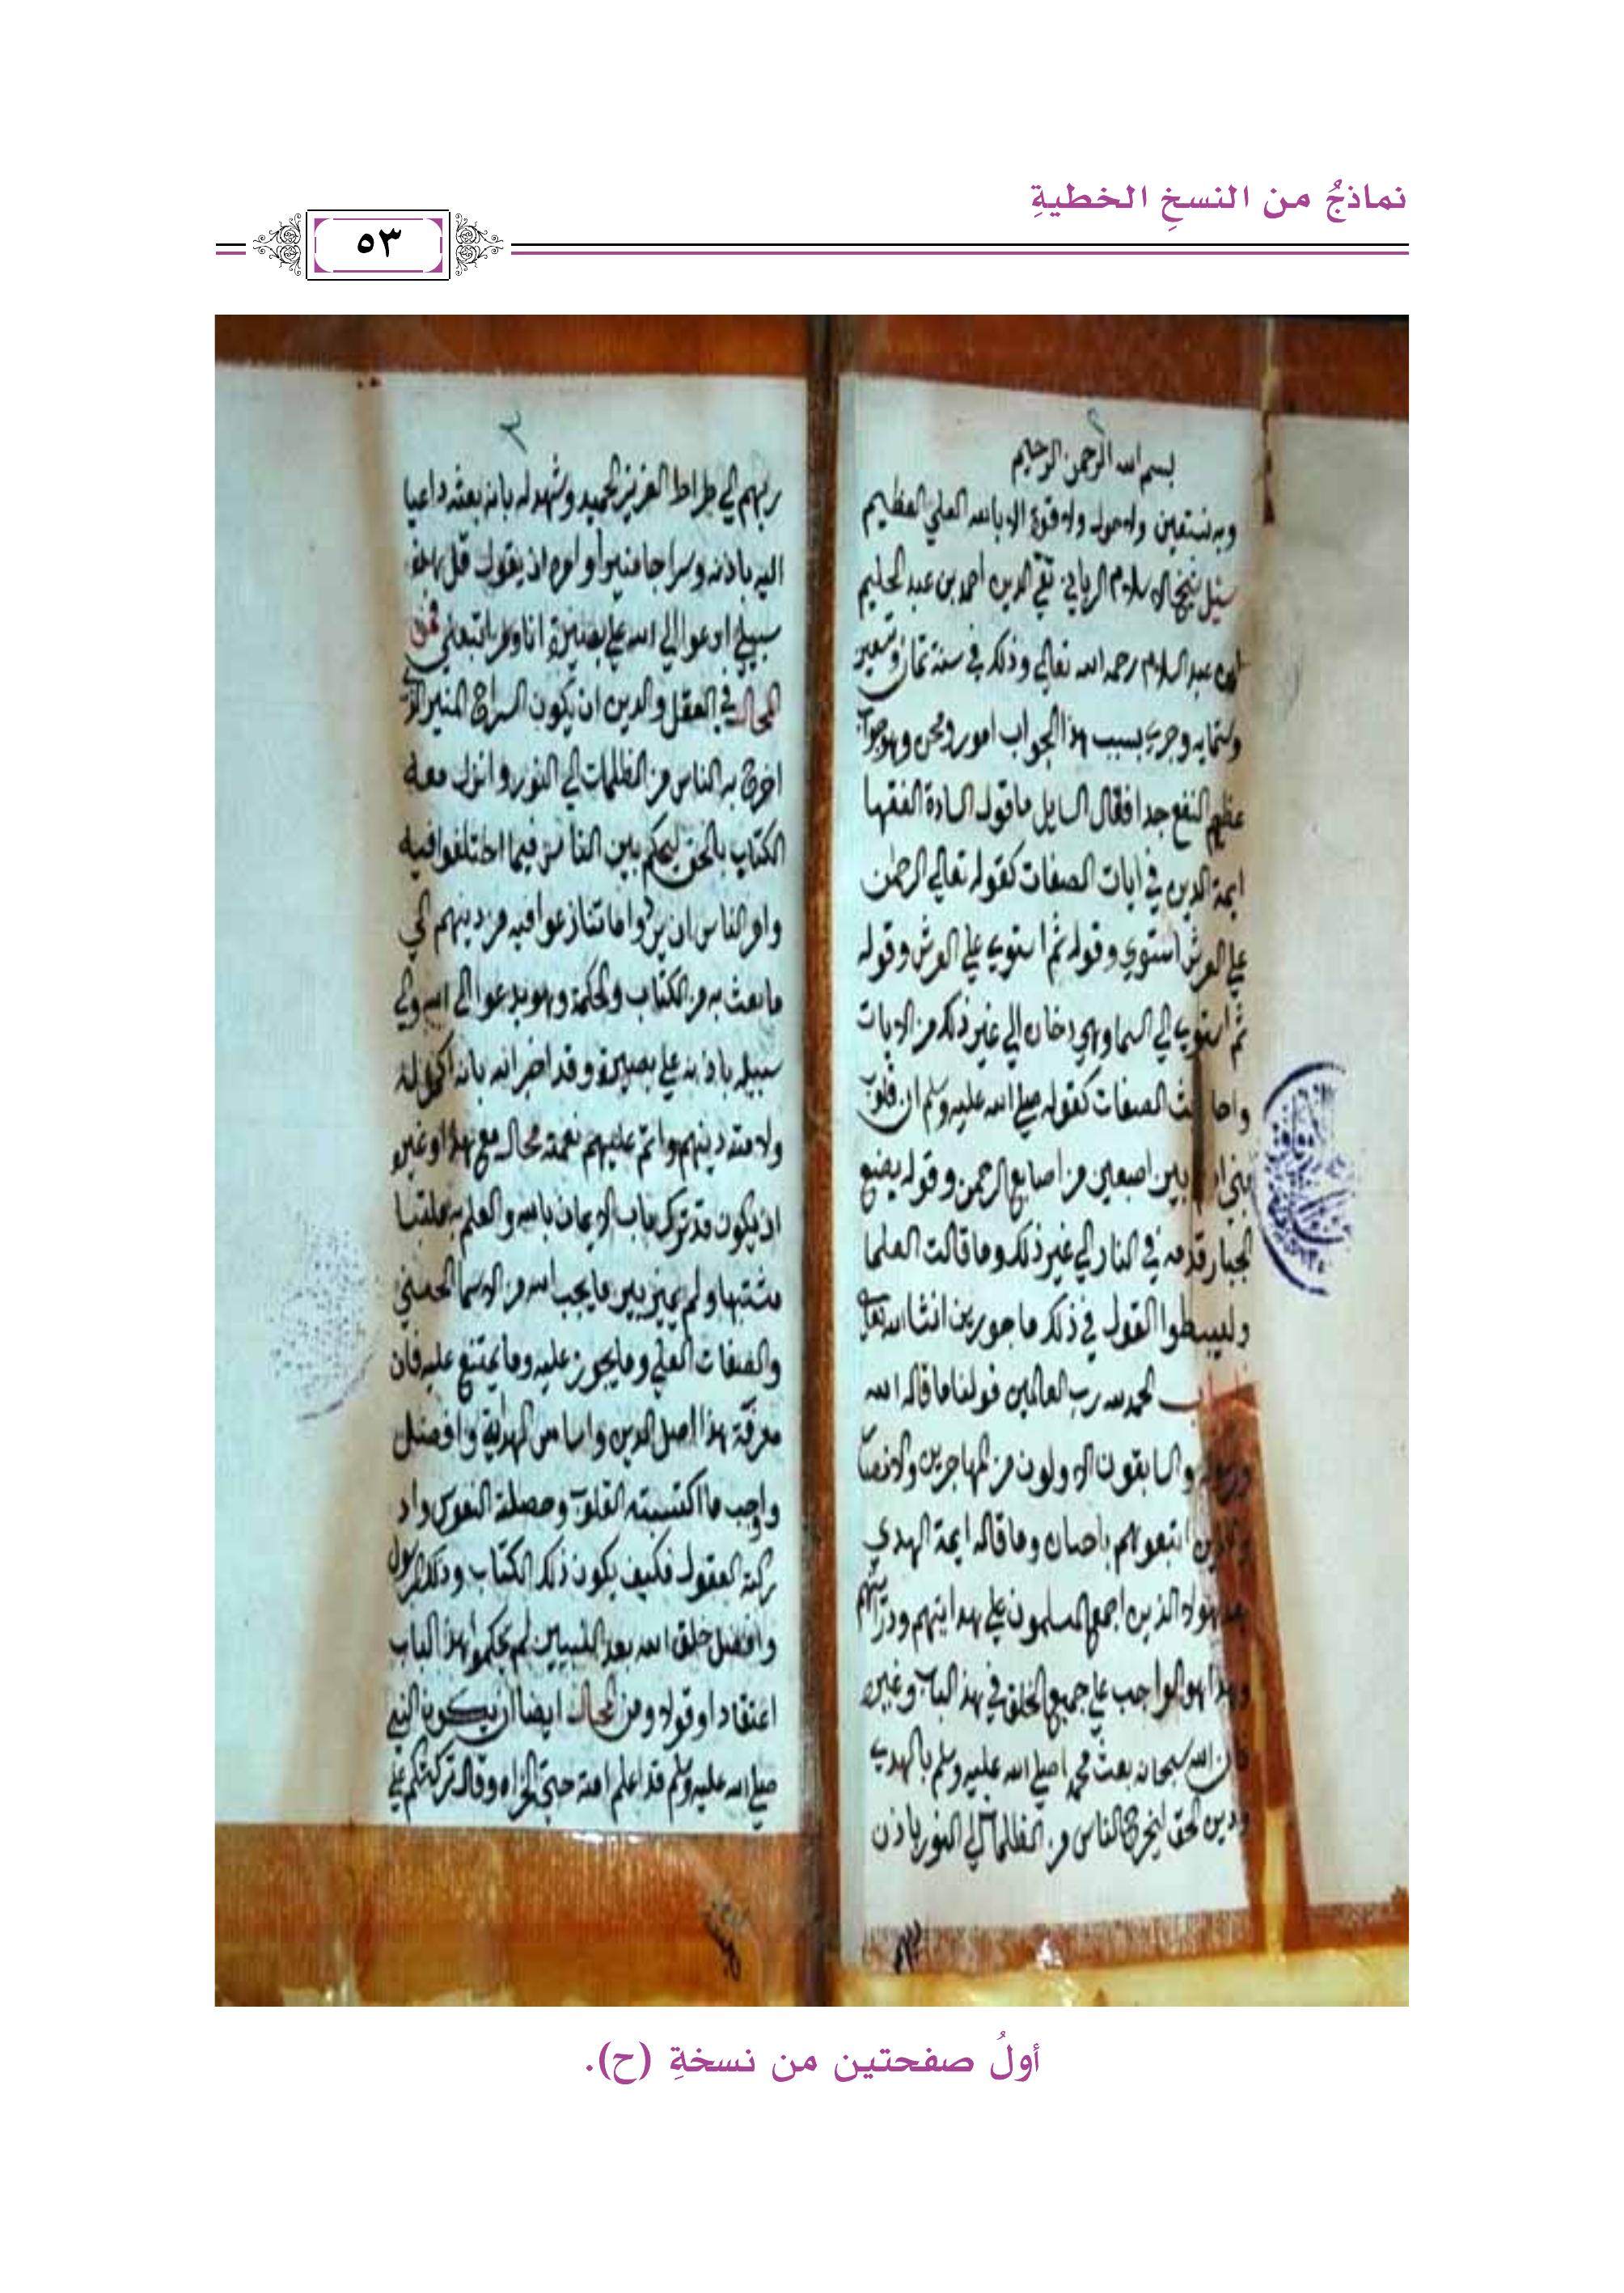 نماذجُ من النسخِ الخطيةِ
٥٣
بسم الله الرحمن الرحيم
وبه نستعين ولا حول ولا قوة الا بالله العلي العظيم
سئل شيخ الاسلام الرباني تقي الدين احمد بن عبد الحليم
ابن عبد السلام رحمه الله تعالي وذلك في سنة ثمان وتسعين
وستمايه وجري بسبب هذا الجواب امور ومحن وهو جواب
عظيم النفع جدا فقال السايل ما قول السادة الفقها
ايمة الدين في ايات الصفات كقوله تعالي الرحمن
علي العرش استوي وقوله ثم استوي علي العرش وقوله
ثم استوي الي السما وهي دخان الي غير ذلك من الايات
واحا يث الصفات كقوله صلي الله عليه وسلم ان قلوب
بني ا بين اصبعين من اصابع الرحمن وقوله يضع
الجبار قدمه في النار الي غير ذلك وما قالت العلما
وليبسطوا القول في ذلك ماجورين انشا الله تعال
الحمد لله رب العالمين قولنا ما قاله الله
ورسوله والسابقون الاولون من المهاجرين والانصا
والذين اتبعوهم باحسان وما قاله ايمة الهدي
بعد هولاء الذين اجمع المسلمون علي هدايتهم ودرايتهم
وهذا هو الواجب علي جميع الخلق في هذ الباب وغيره
فان الله سبحانه بعث محمدا صلي الله عليه وسلم بالهدي
ودين الحق ليخرج الناس من الظلمات الي النور باذن
٣
ربهم الي صراط العزيز الحميد وشهد له بانه بعثه داعيا
اليه باذنه وسراجا منيرا وامره ان يقول قل هذه
سبيلي ادعوا الي الله علي بصيرة انا ومن اتبعني فمن
المحال في العقل والدين ان يكون السراج المنير الذي
اخرج به الناس من الظلمات الي النور وانزل معه
الكتاب بالحق ليحكم بين الناس فيما اختلفوا فيه
وامر الناس ان يردوا ما تنازعوا فيه من دينهم الي
ما بعث به من الكتاب والحكمة وهو يدعوا الي الله والي
سبيله باذنه علي بصيرة وقد اخبر الله بانه اكمل له
ولامته دينهم واتم عليهم نعمته محال مع هذا وغيره
ان يكون قد ترك باب الايمان بالله والعلم به ملتبسا
مشتبها ولم يميز بين ما يجب لله من الاسما الحسني
والصفات العلي وما يجوز عليه وما يمتنع عليه فان
معرفة هذا اصل الدين واساس الهداية وافضل
واوجب ما اكتسبته القلوب وحصلته النفوس واد
ركته العقول فكيف يكون ذلك الكتاب وذلك الرسول
وافضل خلق الله بعد النبيين لم يحكموا هذا الباب
اعتقادا وقولا ومن المحال ايضا ان يكون النبي
صلي الله عليه وسلم قد اعلم امته حتي الخراه وقال تركتكم علي
أولُ صفحتين من نسخةِ (ح).